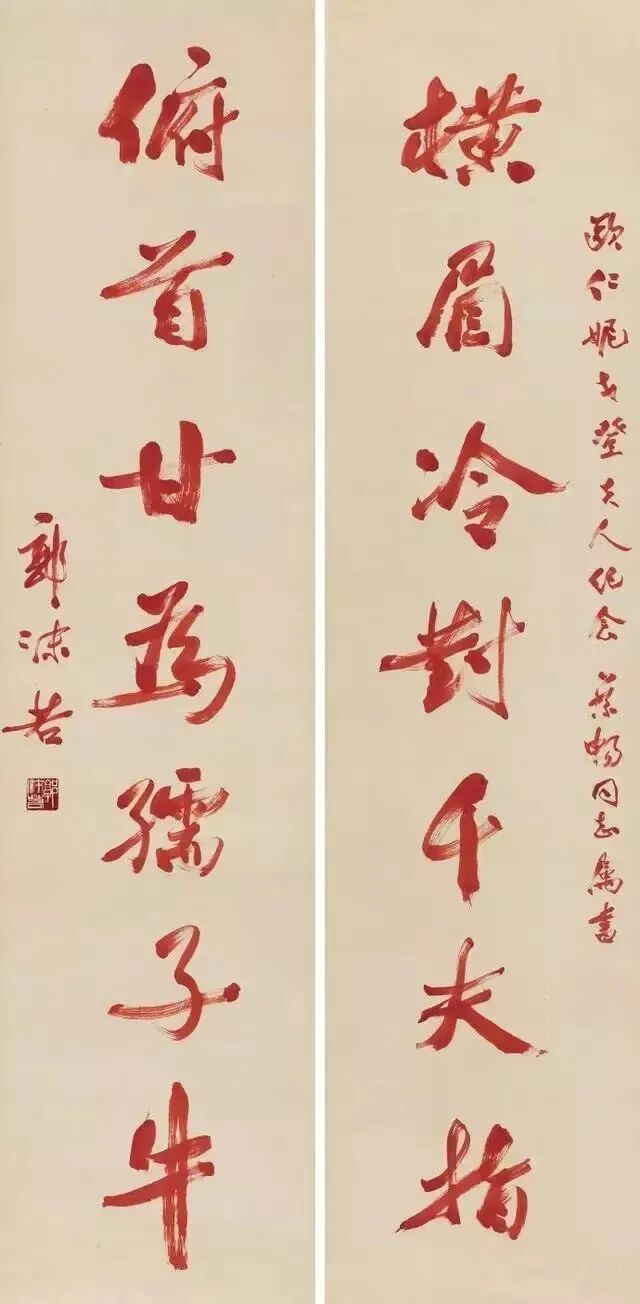 歐仁妮戈登夫人纪念 蔡暢同志属書
横眉冷對千夫指
俯首甘為孺子牛
郭沫若